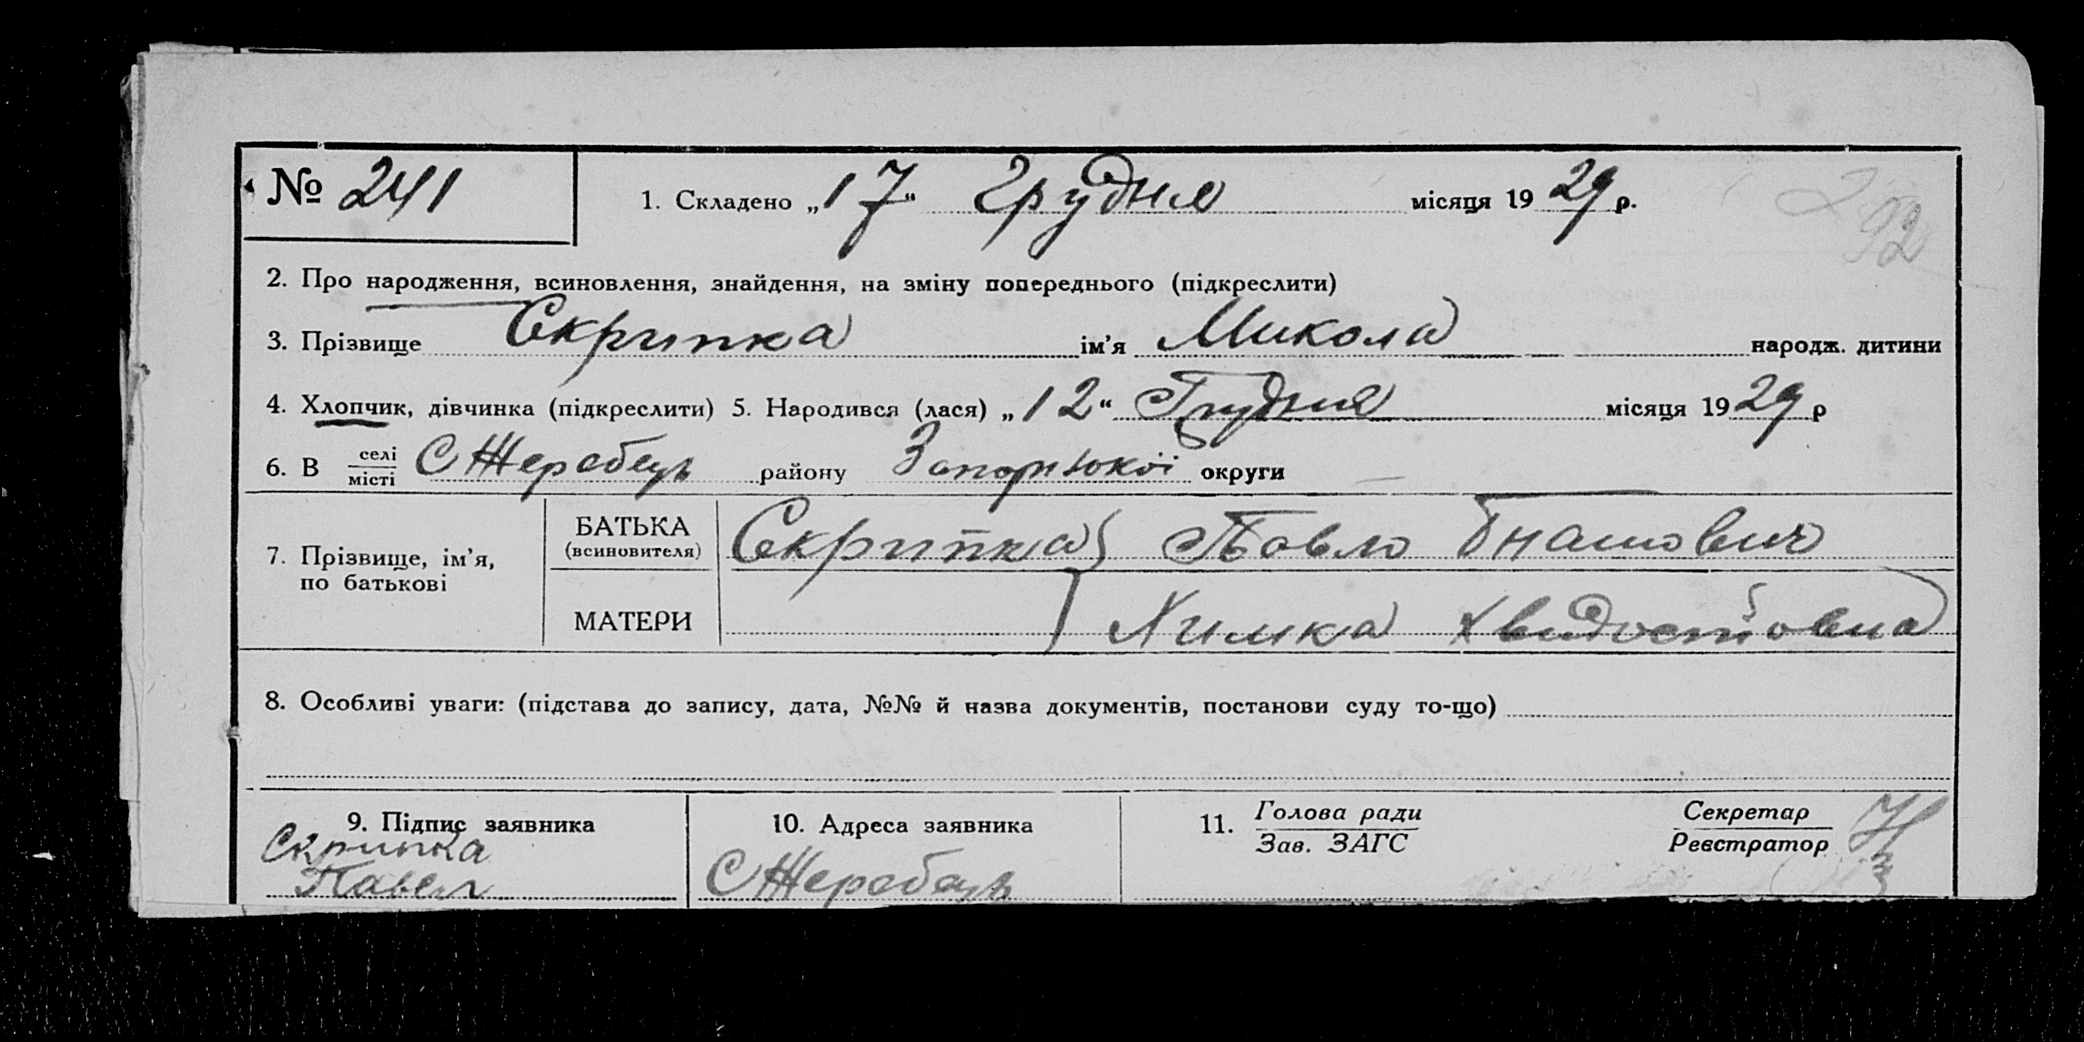 № 241
1. Складено „17“ Грудня місяця 1929 р.
292
2. Про народження, всиновлення, знайдення, на зміну попереднього (підкреслити)
3. Прізвище Скрипка ім'я Микола народж. дитини
4. Хлопчик, дівчинка (підкреслити) 5. Народився (лася) „12“ Грудня місяця 1929 р
6. В селі місті С Жеребець району Запорізької округи
7. Прізвище, ім'я, по батькові
БАТЬКА (всиновителя) Скрипка Павло Гнатович
МАТЕРИ Химка Хведостовна
8. Особливі уваги: (підстава до запису, дата, №№ й назва документів, постанови суду то-що)
9. Підпис заявника
Скрипка
Павел
10. Адреса заявника
С Жеребець
11. Голова ради
Зав. ЗАГС
Секретар
Реєстратор